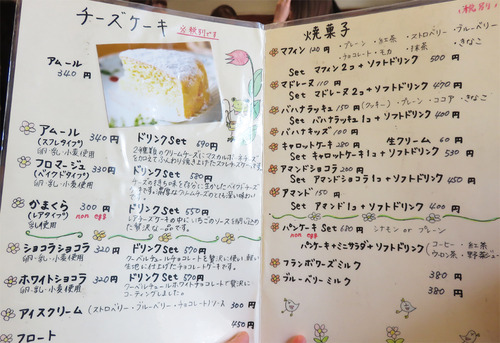 チーズケーキ
※税別です
アムール
340円
アムール 340円
(スフレタイプ)
卵・乳・小麦使用
ドリンクSet 690円
2種類のクリームチーズにマスカルポーネチーズ
を加えてふんわり焼き上げたスフレチーズケーキです。
フロマージュ 330円
(ベイクドタイプ)
卵・乳・小麦使用
ドリンクSet 680円
チーズの持ち味を存分に生かしたベイクドチーズ
かまくら 300円
(レアタイプ) non egg
乳・小麦使用
ドリンクSet 550円
レアチーズケーキの中にいちごのソースを
贅沢な一品です。
ショコラショコラ 320円
卵・乳・小麦使用
ドリンクSet 570円
クーベルチュールチョコレートを贅沢に使い、軽い
生地に仕上げたチョコレートケーキです。
ホワイトショコラ 320円
卵・乳・小麦使用
ドリンクSet 570円
クーベルチュールホワイトチョコレートで贅沢に
コーティングしました。
アイスクリーム (ストロベリー・ブルーベリー・チョコレート)ソース 300円
フロート 450円
焼菓子
税別
マフィン 120円
・プレーン ・紅茶 ・ストロベリー・ブルーベリー
・チョコレート・モカ ・抹茶 ・きなこ
Set マフィン2コ+ソフトドリンク 500円
マドレーヌ 110円
Set マドレーヌ2コ+ソフトドリンク 470円
バハナラッキュ 150円 (クッキー)・プレーン・ココア・きなこ
Set バハナラッキュ1コ+ソフトドリンク 400円
バハナキッズ 100円
キャロットケーキ 280円 生クリーム 60円
Set キャロットケーキ1コ+ソフトドリンク 530円
アマンドショコラ 200円
Set アマンドショコラ1コ+ソフトドリンク 450円
アマンド 150円
Set アマンド1コ+ソフトドリンク 400円
パンケーキSet 680円 シナモン or プレーン
non egg
パンケーキ+ミニサラダ+ソフトドリンク (コーヒー・紅茶
ウーロン茶・野菜ジュー
フランボワーズミルク 380円
ブルーベリーミルク 380円